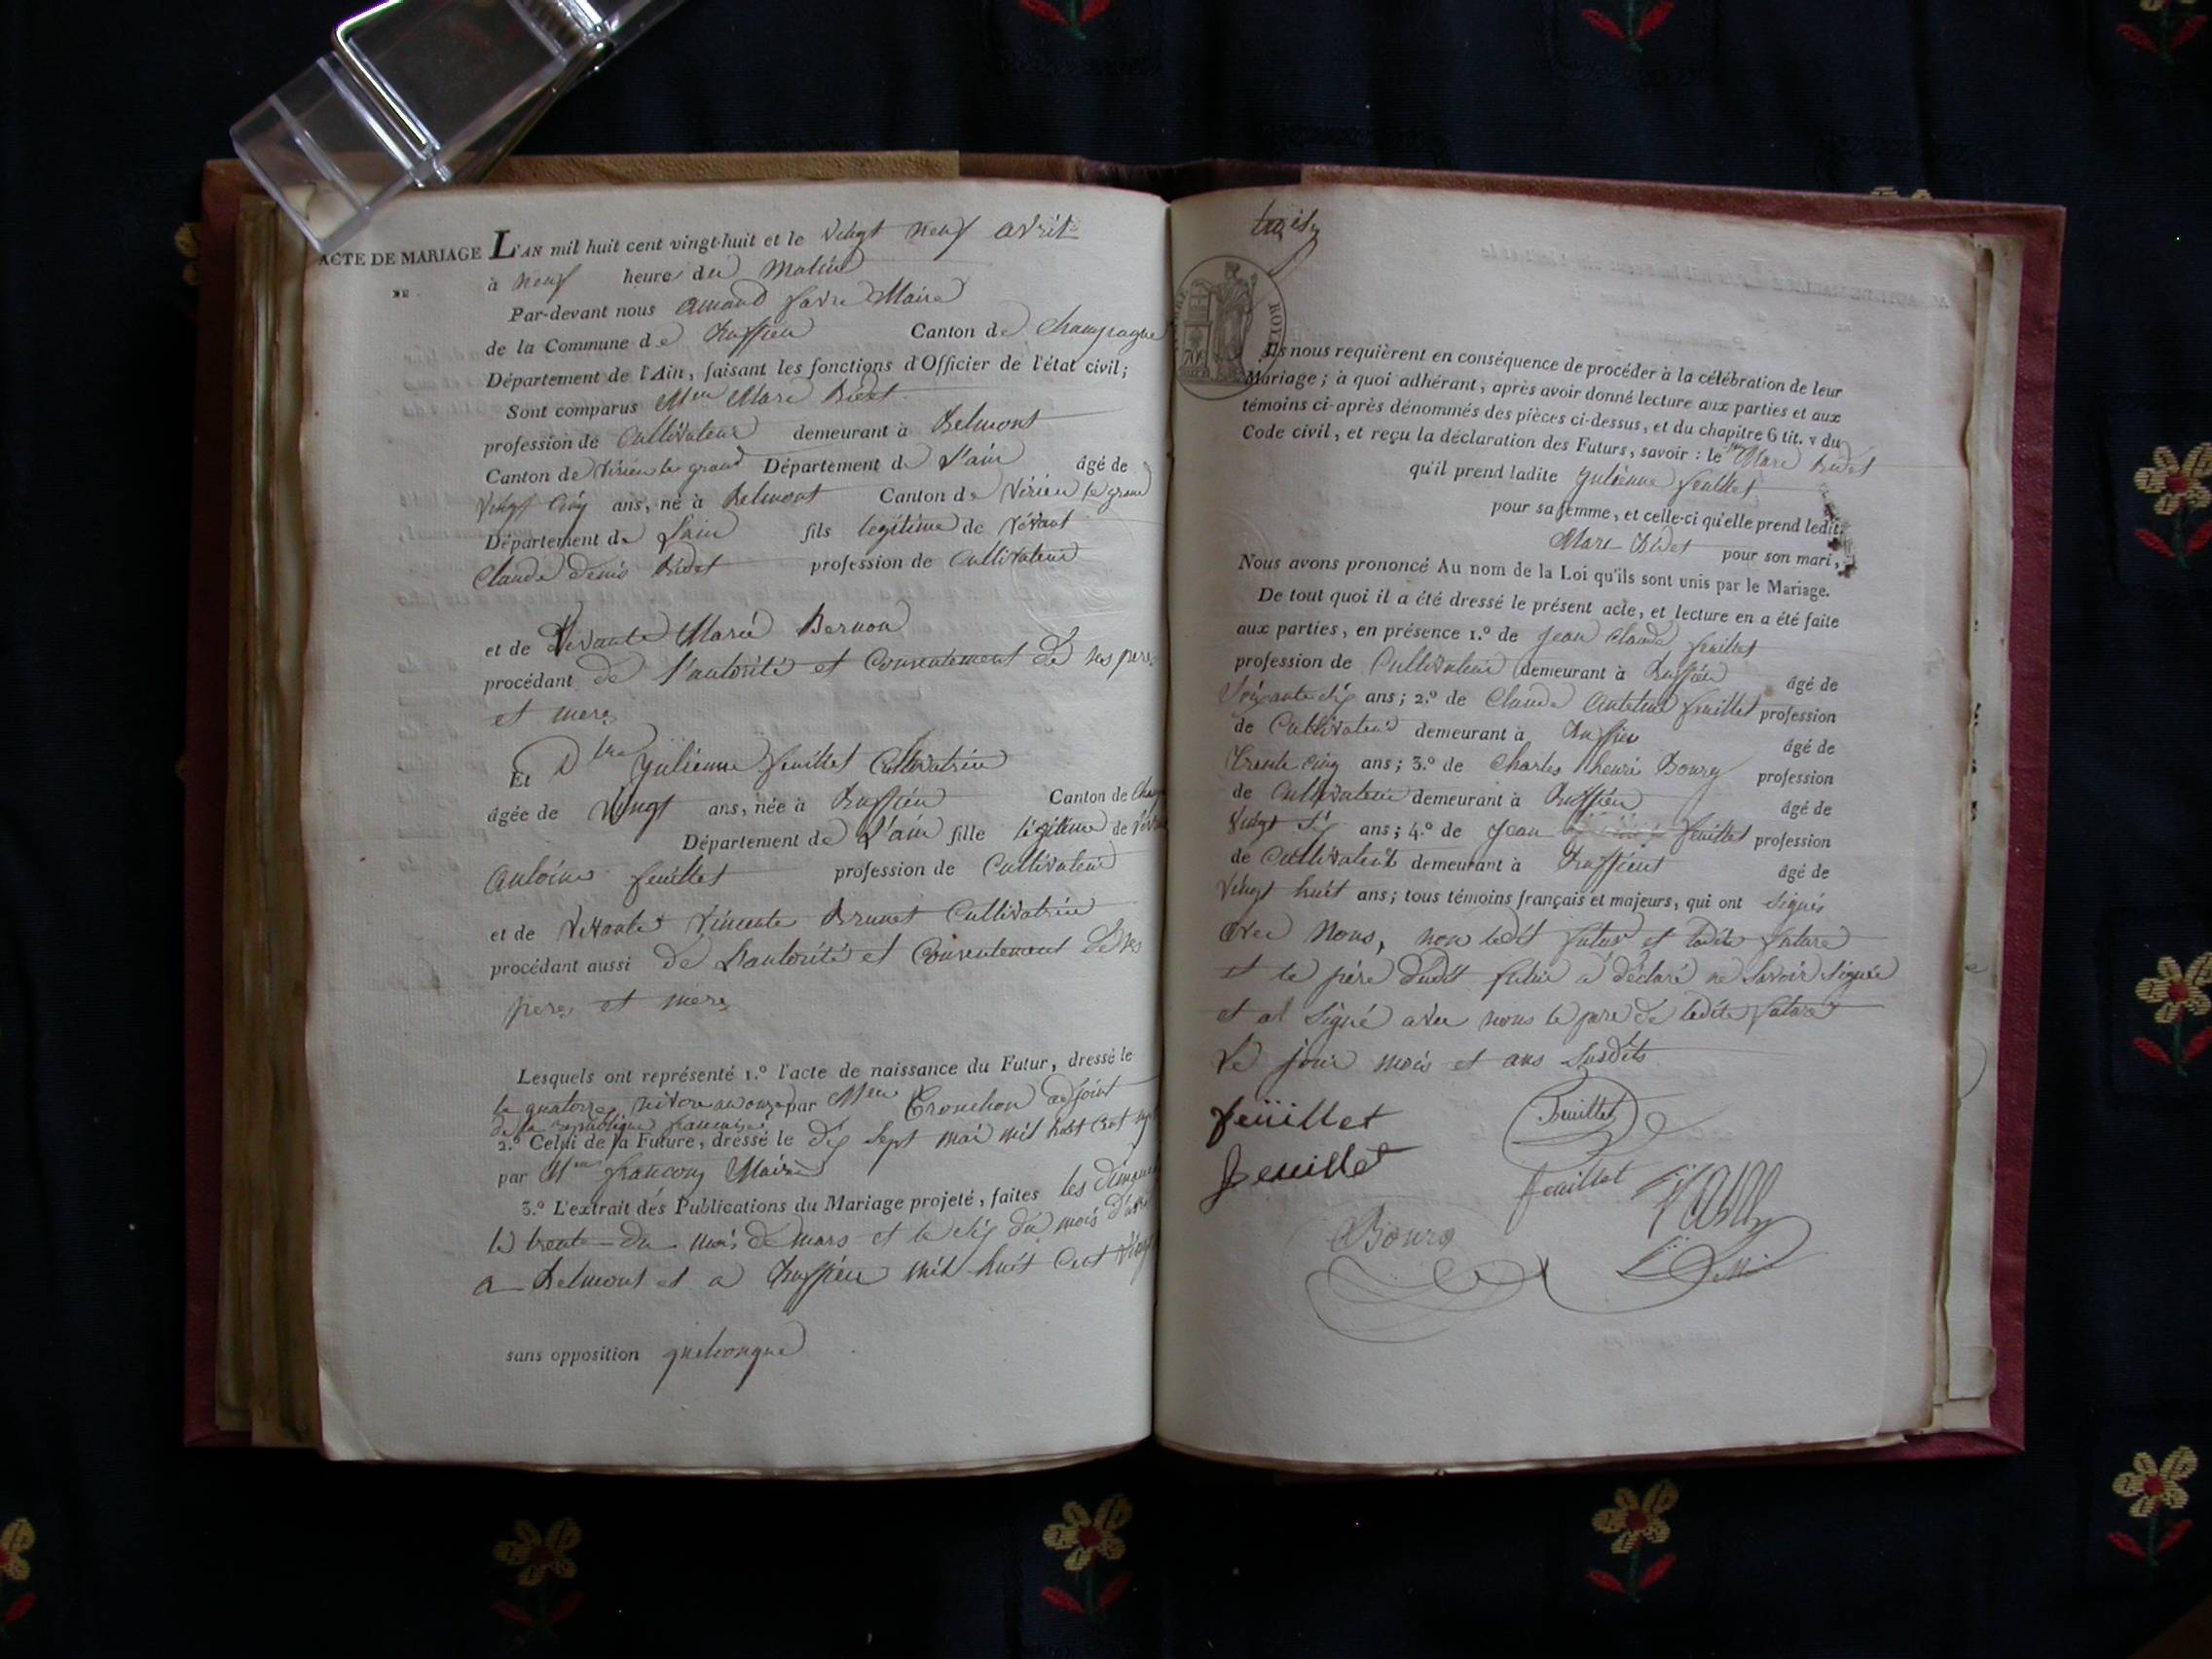 ACTE DE MARIAGE L'AN mil huit cent vingt-huit et le vingt neuf avril
DE
à neuf heures du matin
Par-devant nous amand favre Maire
de la Commune de Ruffieu Canton de Champagne
Département de l'Ain, faisant les fonctions d'Officier de l'état civil;
Sont comparus Marc Bidet
profession de Cultivateur demeurant à Belmont
Canton de Virieu le grand Département de L'ain âgé de
vingt cinq ans, né à Belmont Canton de Virieu le grand
Département de L'ain fils légitime de vivant
Claude denis Bidet profession de Cultivateur
et de vivante Marie Bernon
procédant de l'autorité et Consentement de ses peres
et meres
Et Julienne feuillet Cultivatrice
âgée de vingt ans, née à Ruffieu Canton de
Département de L'ain fille légitime de
Antoine feuillet profession de Cultivateur
et de vivante vincente Brunet Cultivatrice
procédant aussi de L'autorité et Consentement de ses
peres et meres
Lesquels ont représenté 1.º l'acte de naissance du Futur, dressé le
le quatorze nivose an onze par Tronchon adjoint
de la republique francaise
2.º Celui de la Future, dressé le dix sept mai mil huit cent
par francony Maire
3.º L'extrait des Publications du Mariage projeté, faites les
le trente du mois de mars et le six du mois
a Belmont et a Ruffieu mil huit cent
sans opposition quelconque
ROY
70
Ils nous requièrent en conséquence de procéder à la célébration de leur
Mariage; à quoi adhérant, après avoir donné lecture aux parties et aux
témoins ci-après dénommés des pièces ci-dessus, et du chapitre 6 tit. v du
Code civil, et reçu la déclaration des Futurs, savoir: le Marc Bidet
qu'il prend ladite Julienne feuillet
pour sa femme, et celle-ci qu'elle prend ledit
Marc Bidet pour son mari,
Nous avons prononcé Au nom de la Loi qu'ils sont unis par le Mariage.
De tout quoi il a été dressé le présent acte, et lecture en a été faite
aux parties, en présence 1.º de Jean Claude feuillet
profession de Cultivateur demeurant à Ruffieu âgé de
ans; 2.º de Claude Antelme feuillet profession
de Cultivateur demeurant à Ruffieu âgé de
trente cinq ans; 3.º de Charles henri Bourg profession
de Cultivateur demeurant à Ruffieu âgé de
vingt six ans; 4.º de Jean feuillet profession
de Cultivateur demeurant à Ruffieu âgé de
vingt huit ans; tous témoins français et majeurs, qui ont signés
avec nous, non ledit futur et ladite future
et le père dudit futur a déclaré ne savoir signer
et at signé avec nous le pere de ladite future
Le jour mois et ans susdits
feuillet Feuillet
feuillet feuillet
Bourg